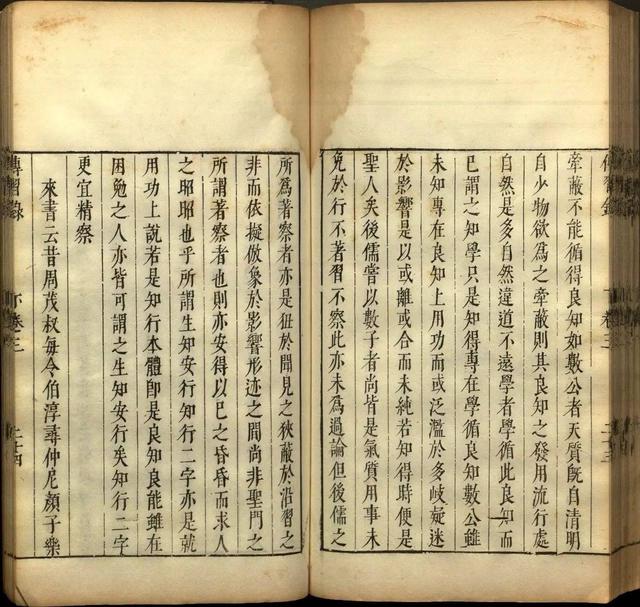 傳習錄 下卷三 二十三
牽蔽不能循得良知如數公者天質既自清明
自少物欲爲之牽蔽則其良知之發用流行處
自然是多自然違道不遠學者學循此良知而
已謂之知學只是知得專在學循良知數公雖
未知專在良知上用功而或泛濫於多岐疑迷
於影響是以或離或合而未純若知得時便是
聖人矣後儒嘗以數子者尚皆是氣質用事未
免於行不著習不察此亦未爲過論但後儒之
所爲著察者亦是狃於聞見之狹蔽於沿習之
非而依擬倣象於影響形迹之間尚非聖門之
所謂著察者也則亦安得以已之昏昏而求人
之昭昭也乎所謂生知安行知行二字亦是就
用功上說若是知行本體卽是良知良能雖在
困勉之人亦皆可謂之生知安行矣知行二字
更宜精察
來書云昔周茂叔每令伯淳尋仲尼顏子樂
傳習錄 下卷三 二十四